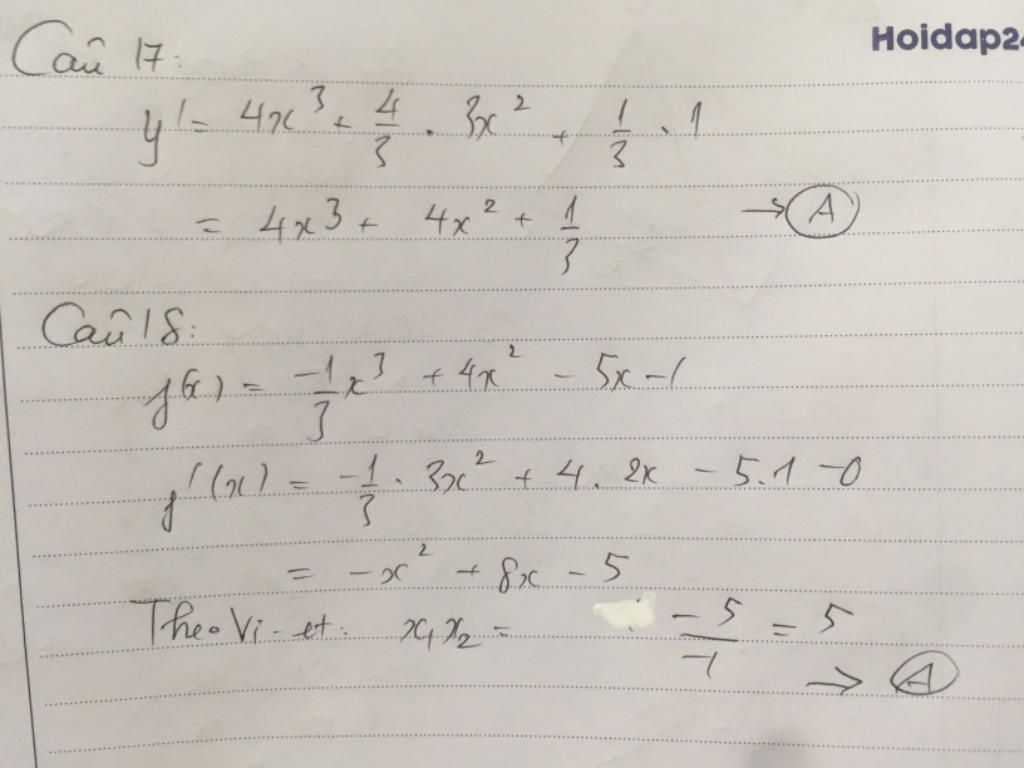 Hoidap24
Câu 17:
y' = 4x³ + 4/3 . 3x² + 1/3 . 1
= 4x³ + 4x² + 1/3 → A
Câu 18:
f(x) = -1/3 x³ + 4x² - 5x - 1
f'(x) = -1/3 . 3x² + 4 . 2x - 5.1 - 0
= -x² + 8x - 5
Theo Vi-et: x₁x₂ = -5/-1 = 5
→ A